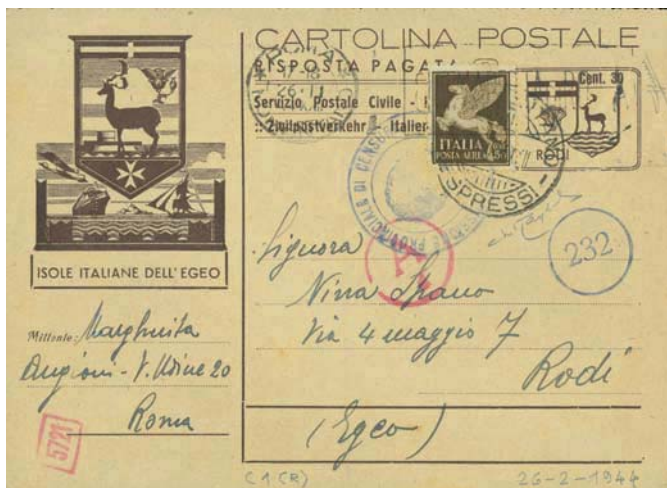 CARTOLINA POSTALE
RISPOSTA PAGATA
Cent. 30
Servizio Postale Civile -
:: Zivilpostverkehr Italien
ITALIA
POSTA AEREA
RODI
ESPRESSI
PROVINCIALE DI CENSURA
232
ISOLE ITALIANE DELL'EGEO
Mittente: Margherita
Angioni - V. Udine 20
Roma
5721
Signora
Nina Spano
Via 4 maggio 7
Rodi
(Egeo)
C1(R)
26-2-1944